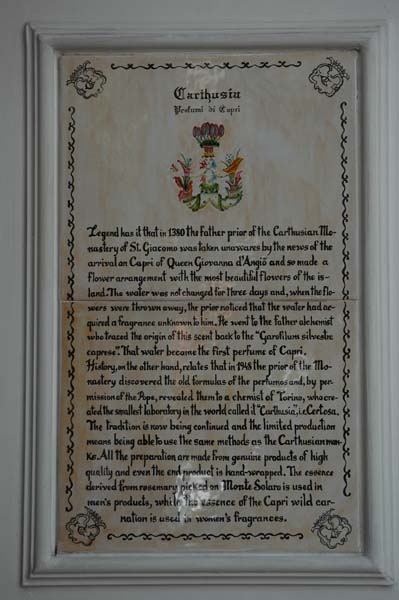 Carthusia
Profumi di Capri
Legend has it that in 1380 the Father prior of the Carthusian Mo-
nastery of St. Giacomo was taken unawares by the news of the
arrival on Capri of Queen Giovanna d'Angiò and so made a
flower arrangement with the most beautiful flowers of the is-
land. The water was not changed for three days and, when the flo-
wers were thrown away, the prior noticed that the water had ac-
quired a fragrance unknown to him. He went to the Father alchemist
who traced the origin of this scent back to the "Garofilum silvestre
caprese". That water became the first perfume of Capri.
History, on the other hand, relates that in 1948 the prior of the Mo-
nastery discovered the old formulas of the perfumes and, by per-
mission of the Pope, revealed them to a chemist of Torino, who cre-
ated the smallest laboratory in the world called d "Carthusia", i.e. Certosa.
The tradition is now being continued and the limited production
means being able to use the same methods as the Carthusian mon-
ks. All the preparation are made from genuine products of high
quality and even the end product is hand-wrapped. The essence
derived from rosemary picked on Monte Solaro is used in
men's products, while the essence of the Capri wild car-
nation is used in women's fragrances.